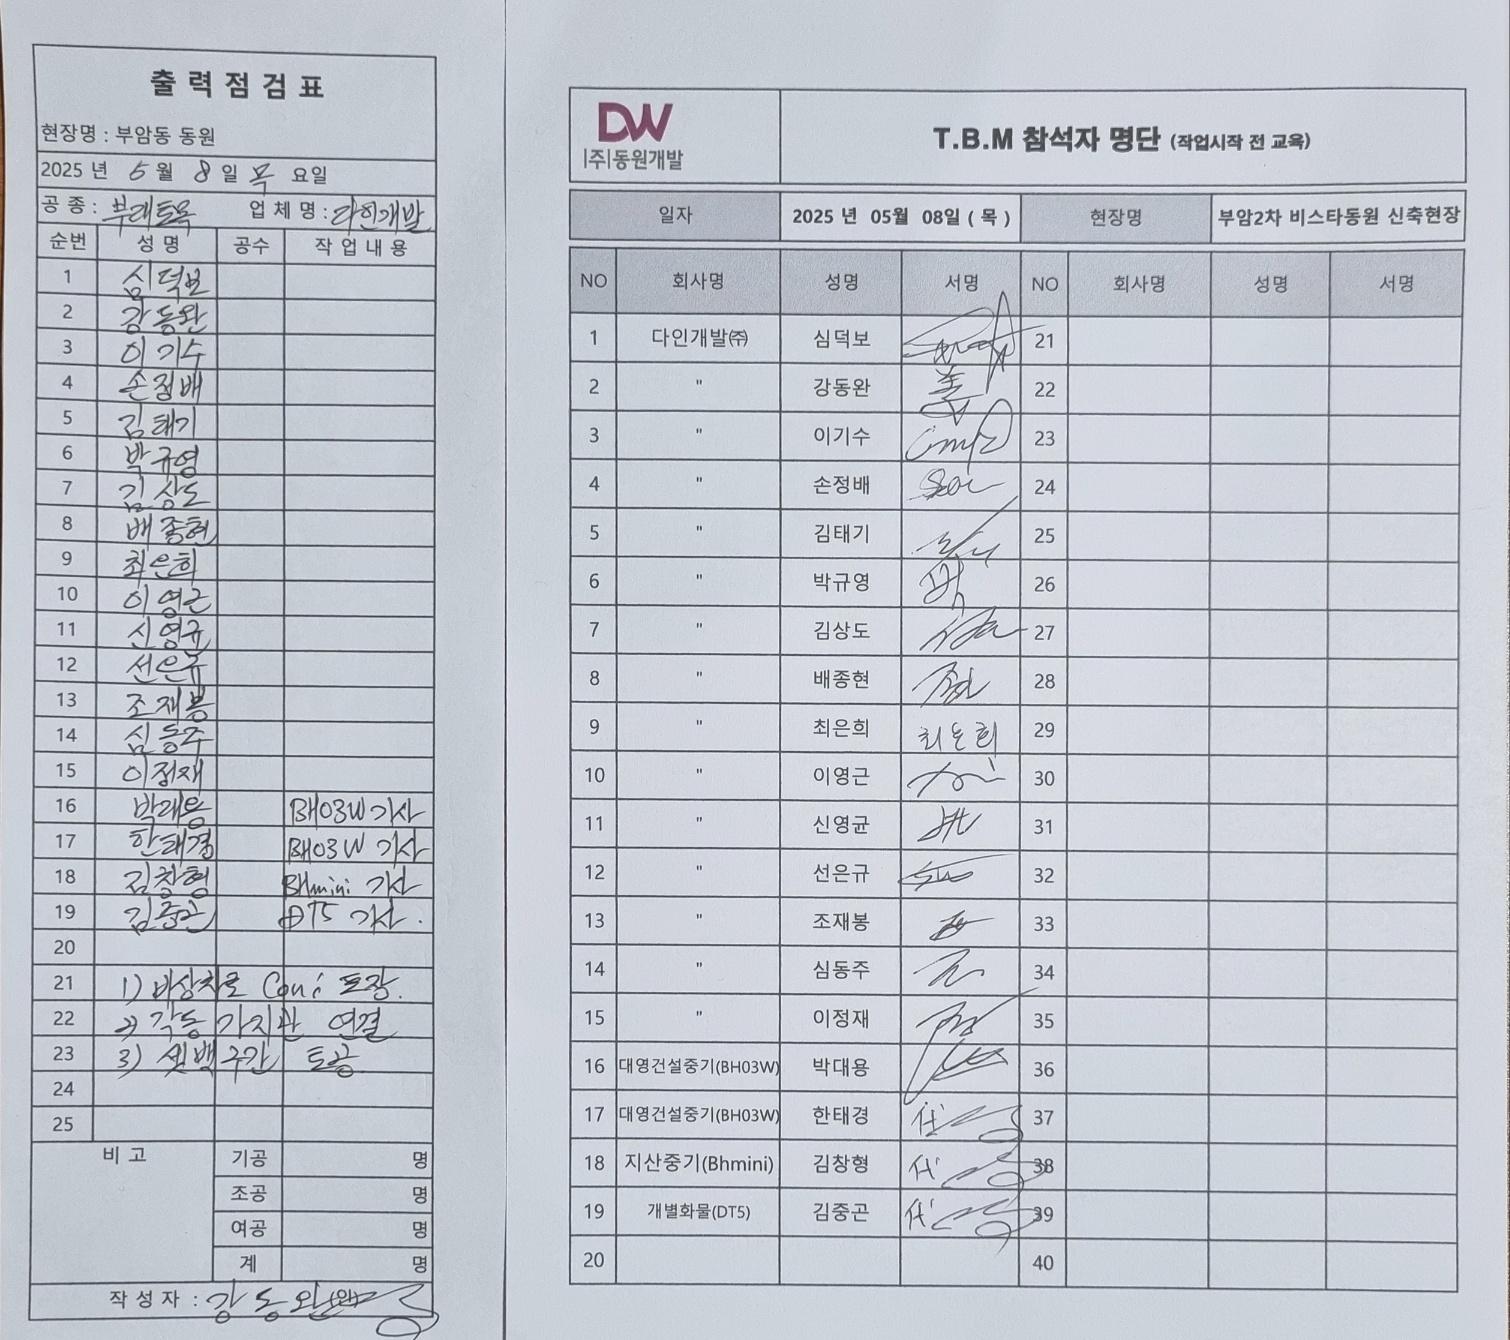 출력점검표
현장명 : 부암동 동원
2025 년 5 월 8 일 목 요일
공 종 : 부대토목 업 체 명 : 다인개발
순번 성 명 공수 작 업 내 용
1 심덕보
2 강동완
3 이기수
4 손정배
5 김태기
6 박규영
7 김상도
8 배종현
9 최은희
10 이영근
11 신영균
12 선은규
13 조재봉
14 심동주
15 이정재
16 박대용 BH03W 기사
17 한태경 BH03W 기사
18 김창형 BHmini 기사
19 김중곤 DT5 기사.
20
21 1) 비상차로 Con'c 포장.
22 2) 각동 가지관 연결
23 3) 셋백구간 토공
24
25
비 고 기공 명
조공 명
여공 명
계 명
작 성 자 : 강동완
DW
(주)동원개발
T.B.M 참석자 명단 (작업시작 전 교육)
일자 2025 년 05월 08일 ( 목 ) 현장명 부암2차 비스타동원 신축현장
NO 회사명 성명 서명 NO 회사명 성명 서명
1 다인개발㈜ 심덕보 21
2 " 강동완 22
3 " 이기수 23
4 " 손정배 24
5 " 김태기 25
6 " 박규영 박 26
7 " 김상도 27
8 " 배종현 28
9 " 최은희 최은희 29
10 " 이영근 30
11 " 신영균 31
12 " 선은규 32
13 " 조재봉 33
14 " 심동주 34
15 " 이정재 35
16 대영건설중기(BH03W) 박대용 36
17 대영건설중기(BH03W) 한태경 代 37
18 지산중기(Bhmini) 김창형 代 38
19 개별화물(DT5) 김중곤 代 39
20 40